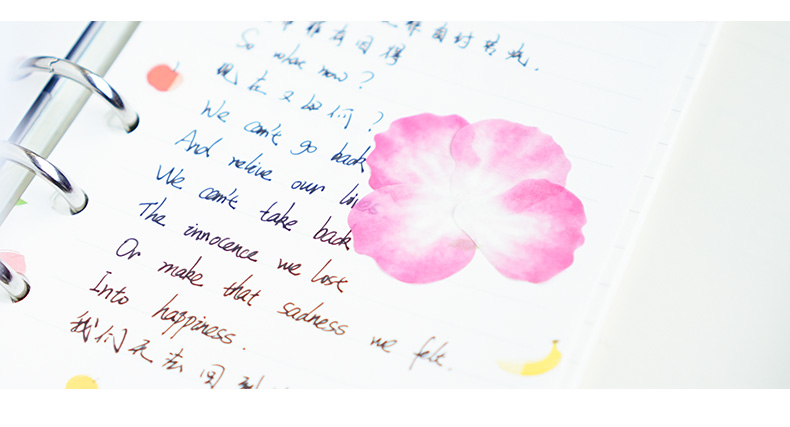 So what now?
现在又如何?
We can't go back
And relive our
We can't take back
The innocence we lost
Or make that sadness we felt.
Into happiness.
我们无法回到